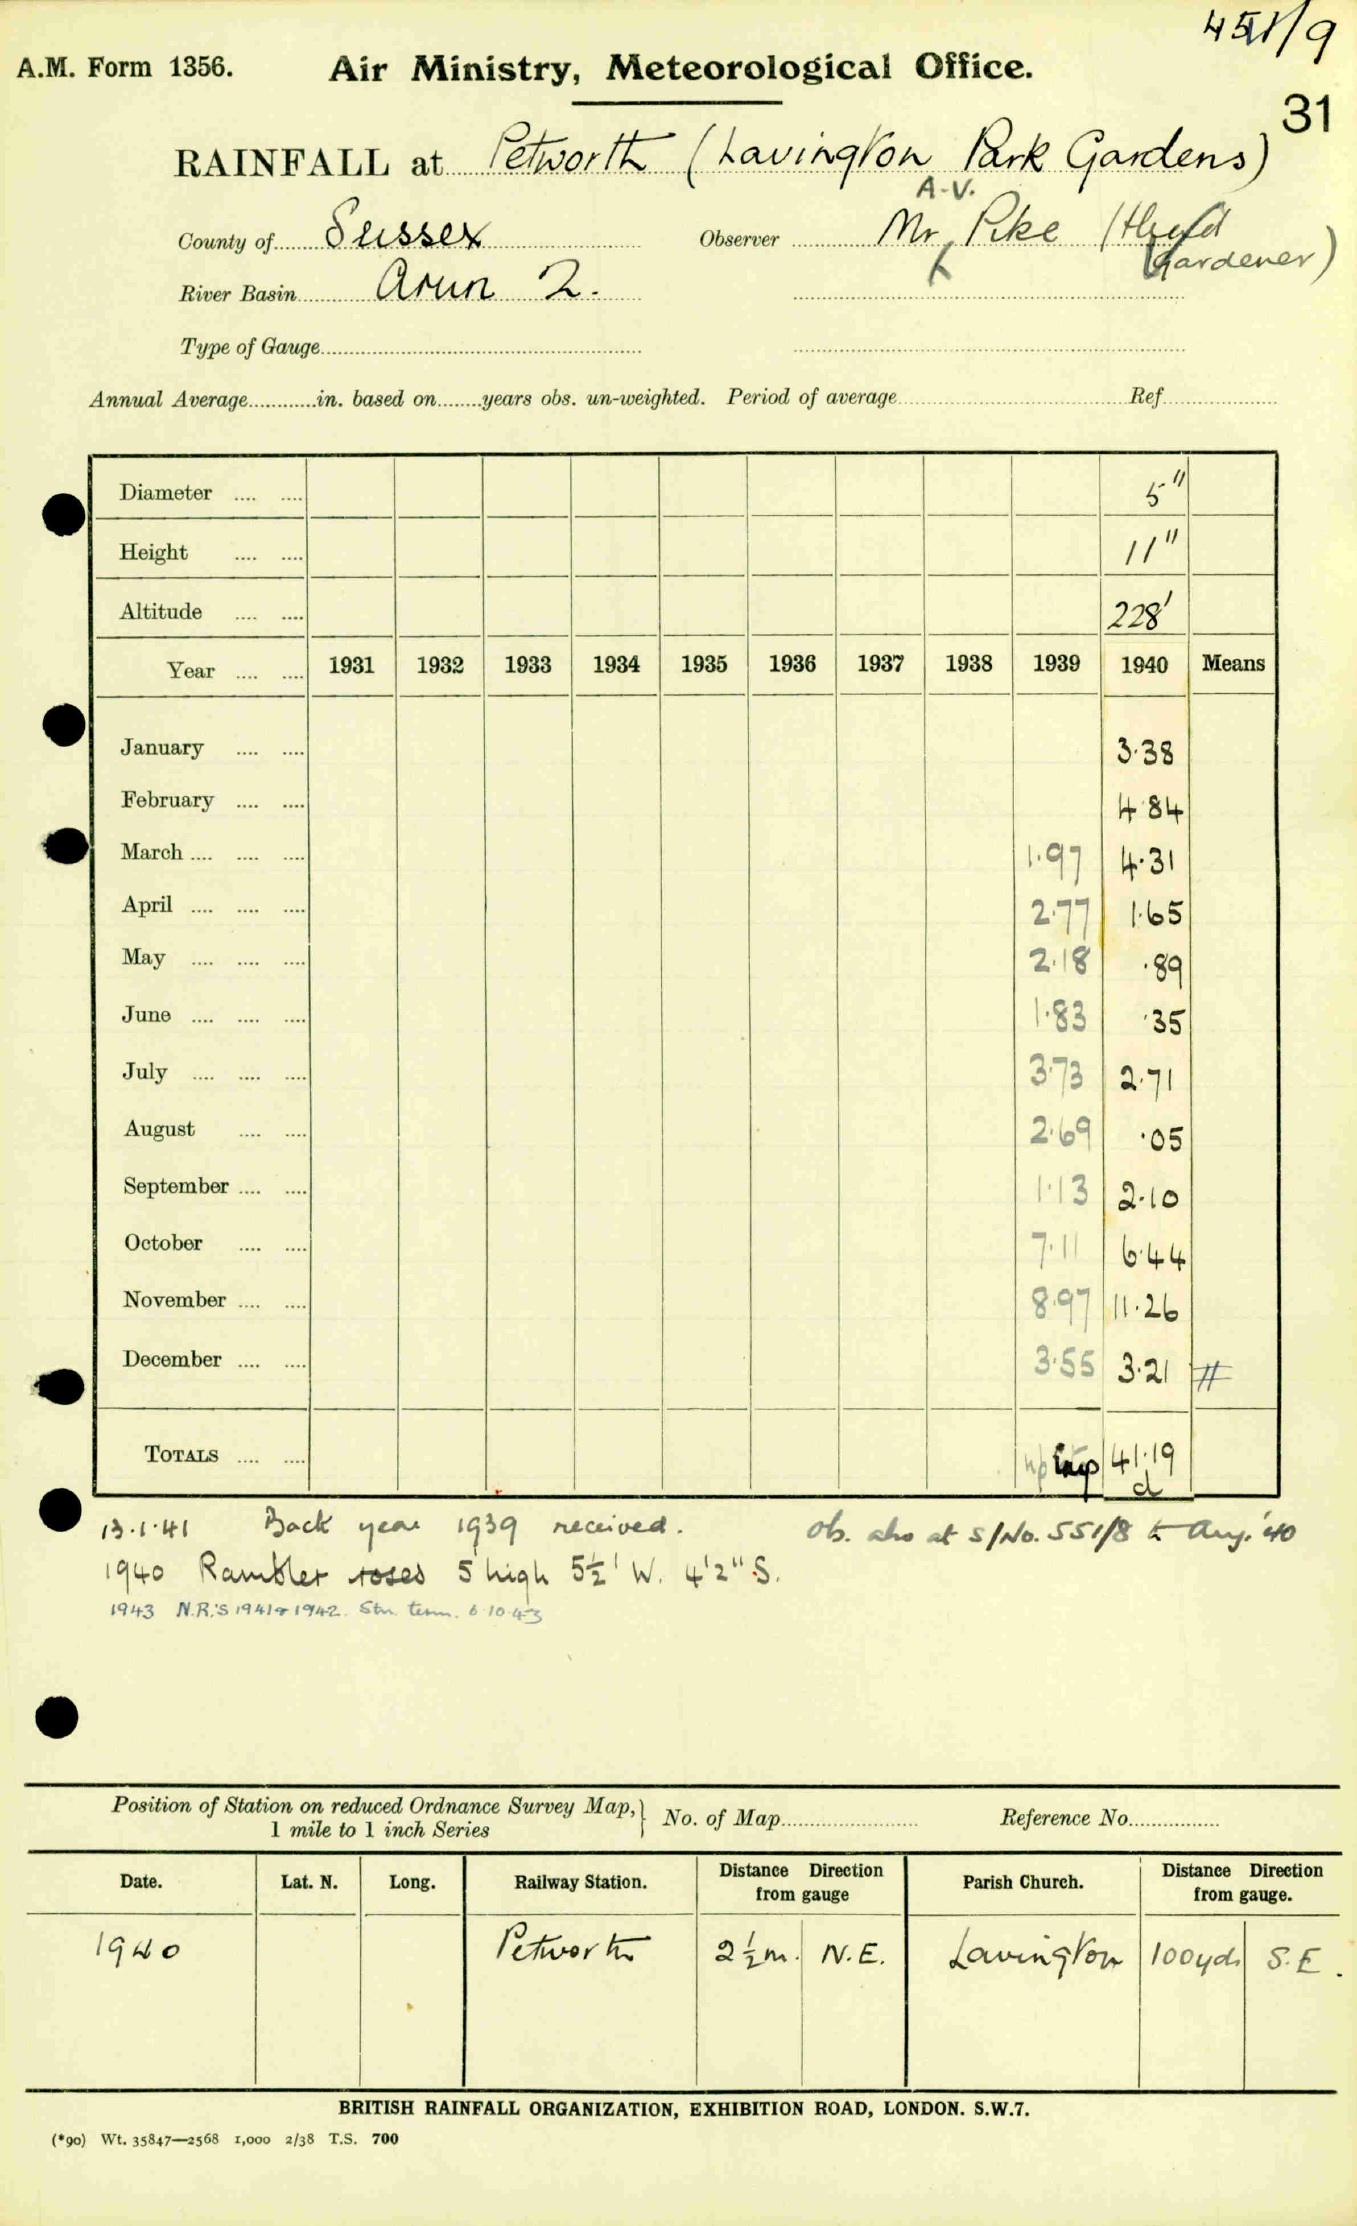 451/9
A.M. Form 1356. Air Ministry, Meteorological Office.
31
RAINFALL at Petworth (Lavington Park Gardens)
A.V.
County of Sussex Observer Mr Pike (Head
Gardener)
River Basin Arun 2.
Type of Gauge
Annual Average in. based on years obs. un-weighted. Period of average Ref
Diameter .... .... 5"
Height .... .... 11"
Altitude .... .... 228'
Year .... .... 1931 1932 1933 1934 1935 1936 1937 1938 1939 1940 Means
January .... .... 3.38
February .... .... 4.84
March .... .... .... 1.97 4.31
April .... .... .... 2.77 1.65
May .... .... .... 2.18 .89
June .... .... .... 1.83 .35
July .... .... .... 3.73 2.71
August .... .... 2.69 .05
September .... .... 1.13 2.10
October .... .... 7.11 6.44
November .... .... 8.97 11.26
December .... .... 3.55 3.21 #
TOTALS .... .... 41.19
d
13.1.41 Back year 1939 received. Ob. also at S/No. 551/8 to Aug. '40
1940 Rambler roses 5' high 5½' W. 4'2" S.
1943 N.R.'S 1941 & 1942. Stn. term. 6.10.43
Position of Station on reduced Ordnance Survey Map, } No. of Map Reference No.
1 mile to 1 inch Series
Date. Lat. N. Long. Railway Station. Distance Direction from gauge Parish Church. Distance Direction from gauge.
1940 Petworth 2½m. N.E. Lavington 100yds S.E.
BRITISH RAINFALL ORGANIZATION, EXHIBITION ROAD, LONDON. S.W.7.
(*90) Wt. 35847—2568 1,000 2/38 T.S. 700